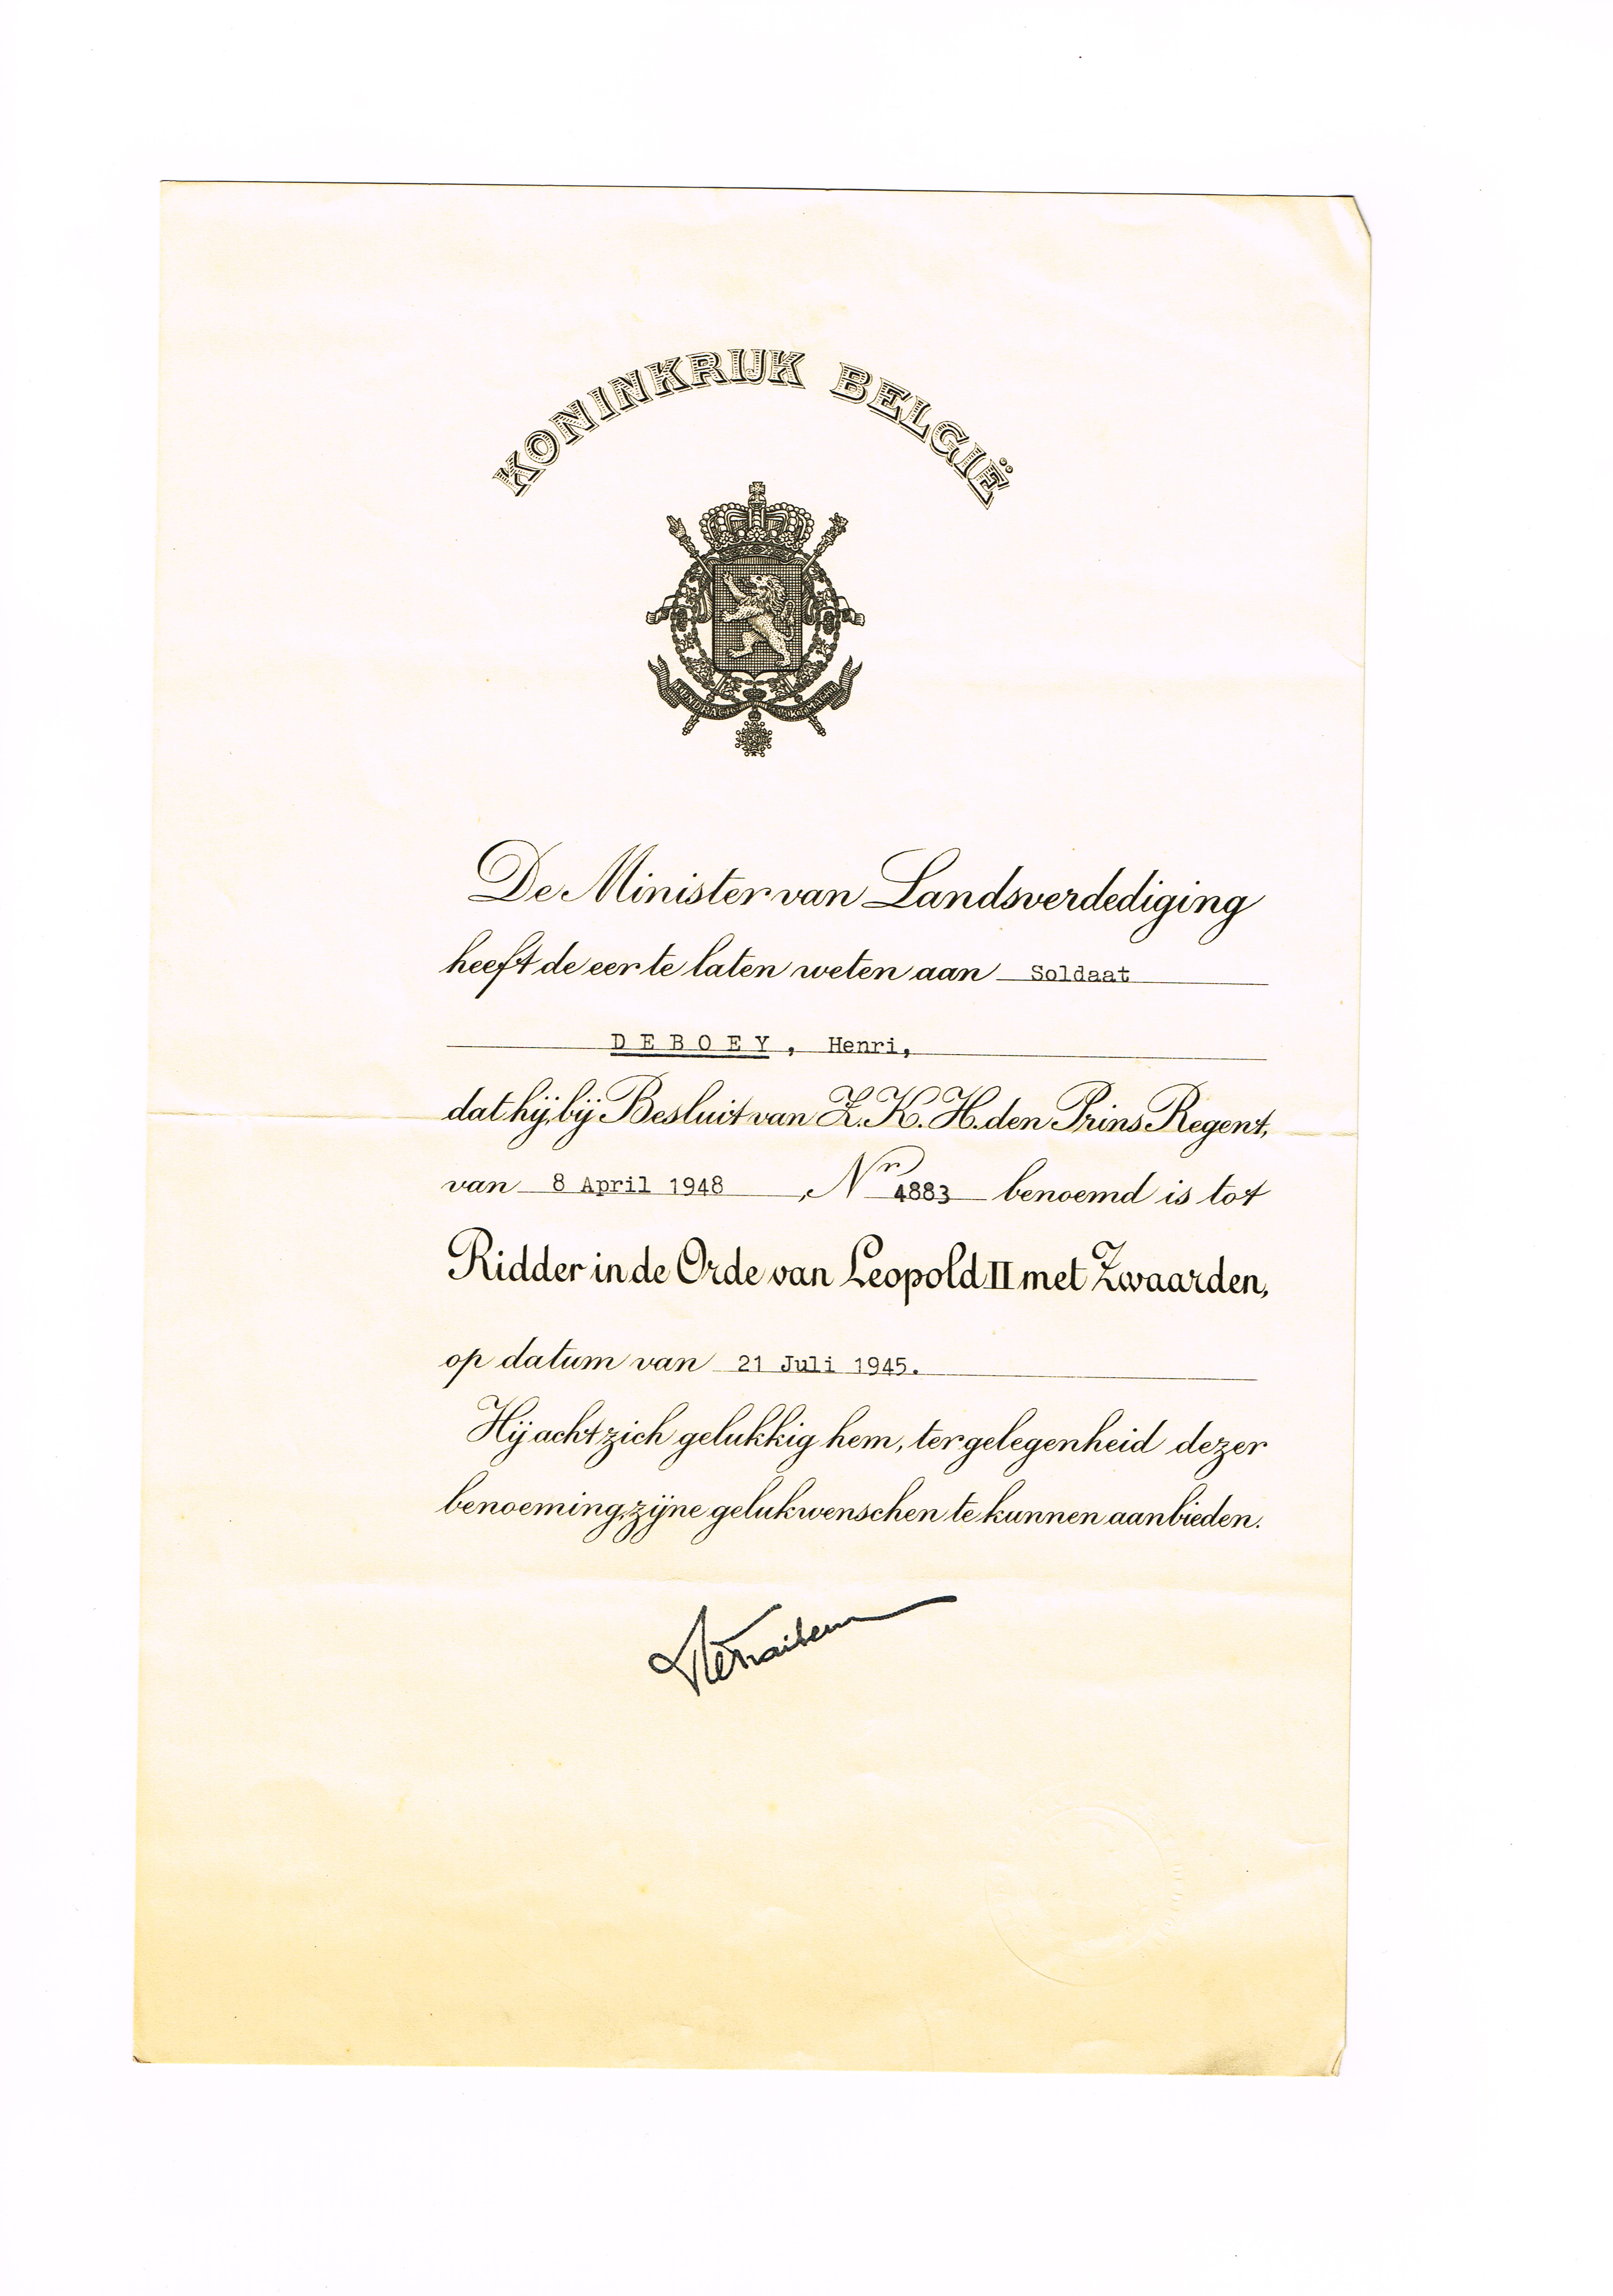 KONINKRIJK BELGIË
EENDRACHT MAAKT MACHT
De Minister van Landsverdediging
heeft de eer te laten weten aan Soldaat
DEBOEY, Henri,
dat hij, bij Besluit van Z.K.H. den Prins Regent,
van 8 April 1948, Nr 4883 benoemd is tot
Ridder in de Orde van Leopold II met Zwaarden,
op datum van 21 Juli 1945.
Hij acht zich gelukkig hem, ter gelegenheid dezer
benoeming, zijne gelukwenschen te kunnen aanbieden.